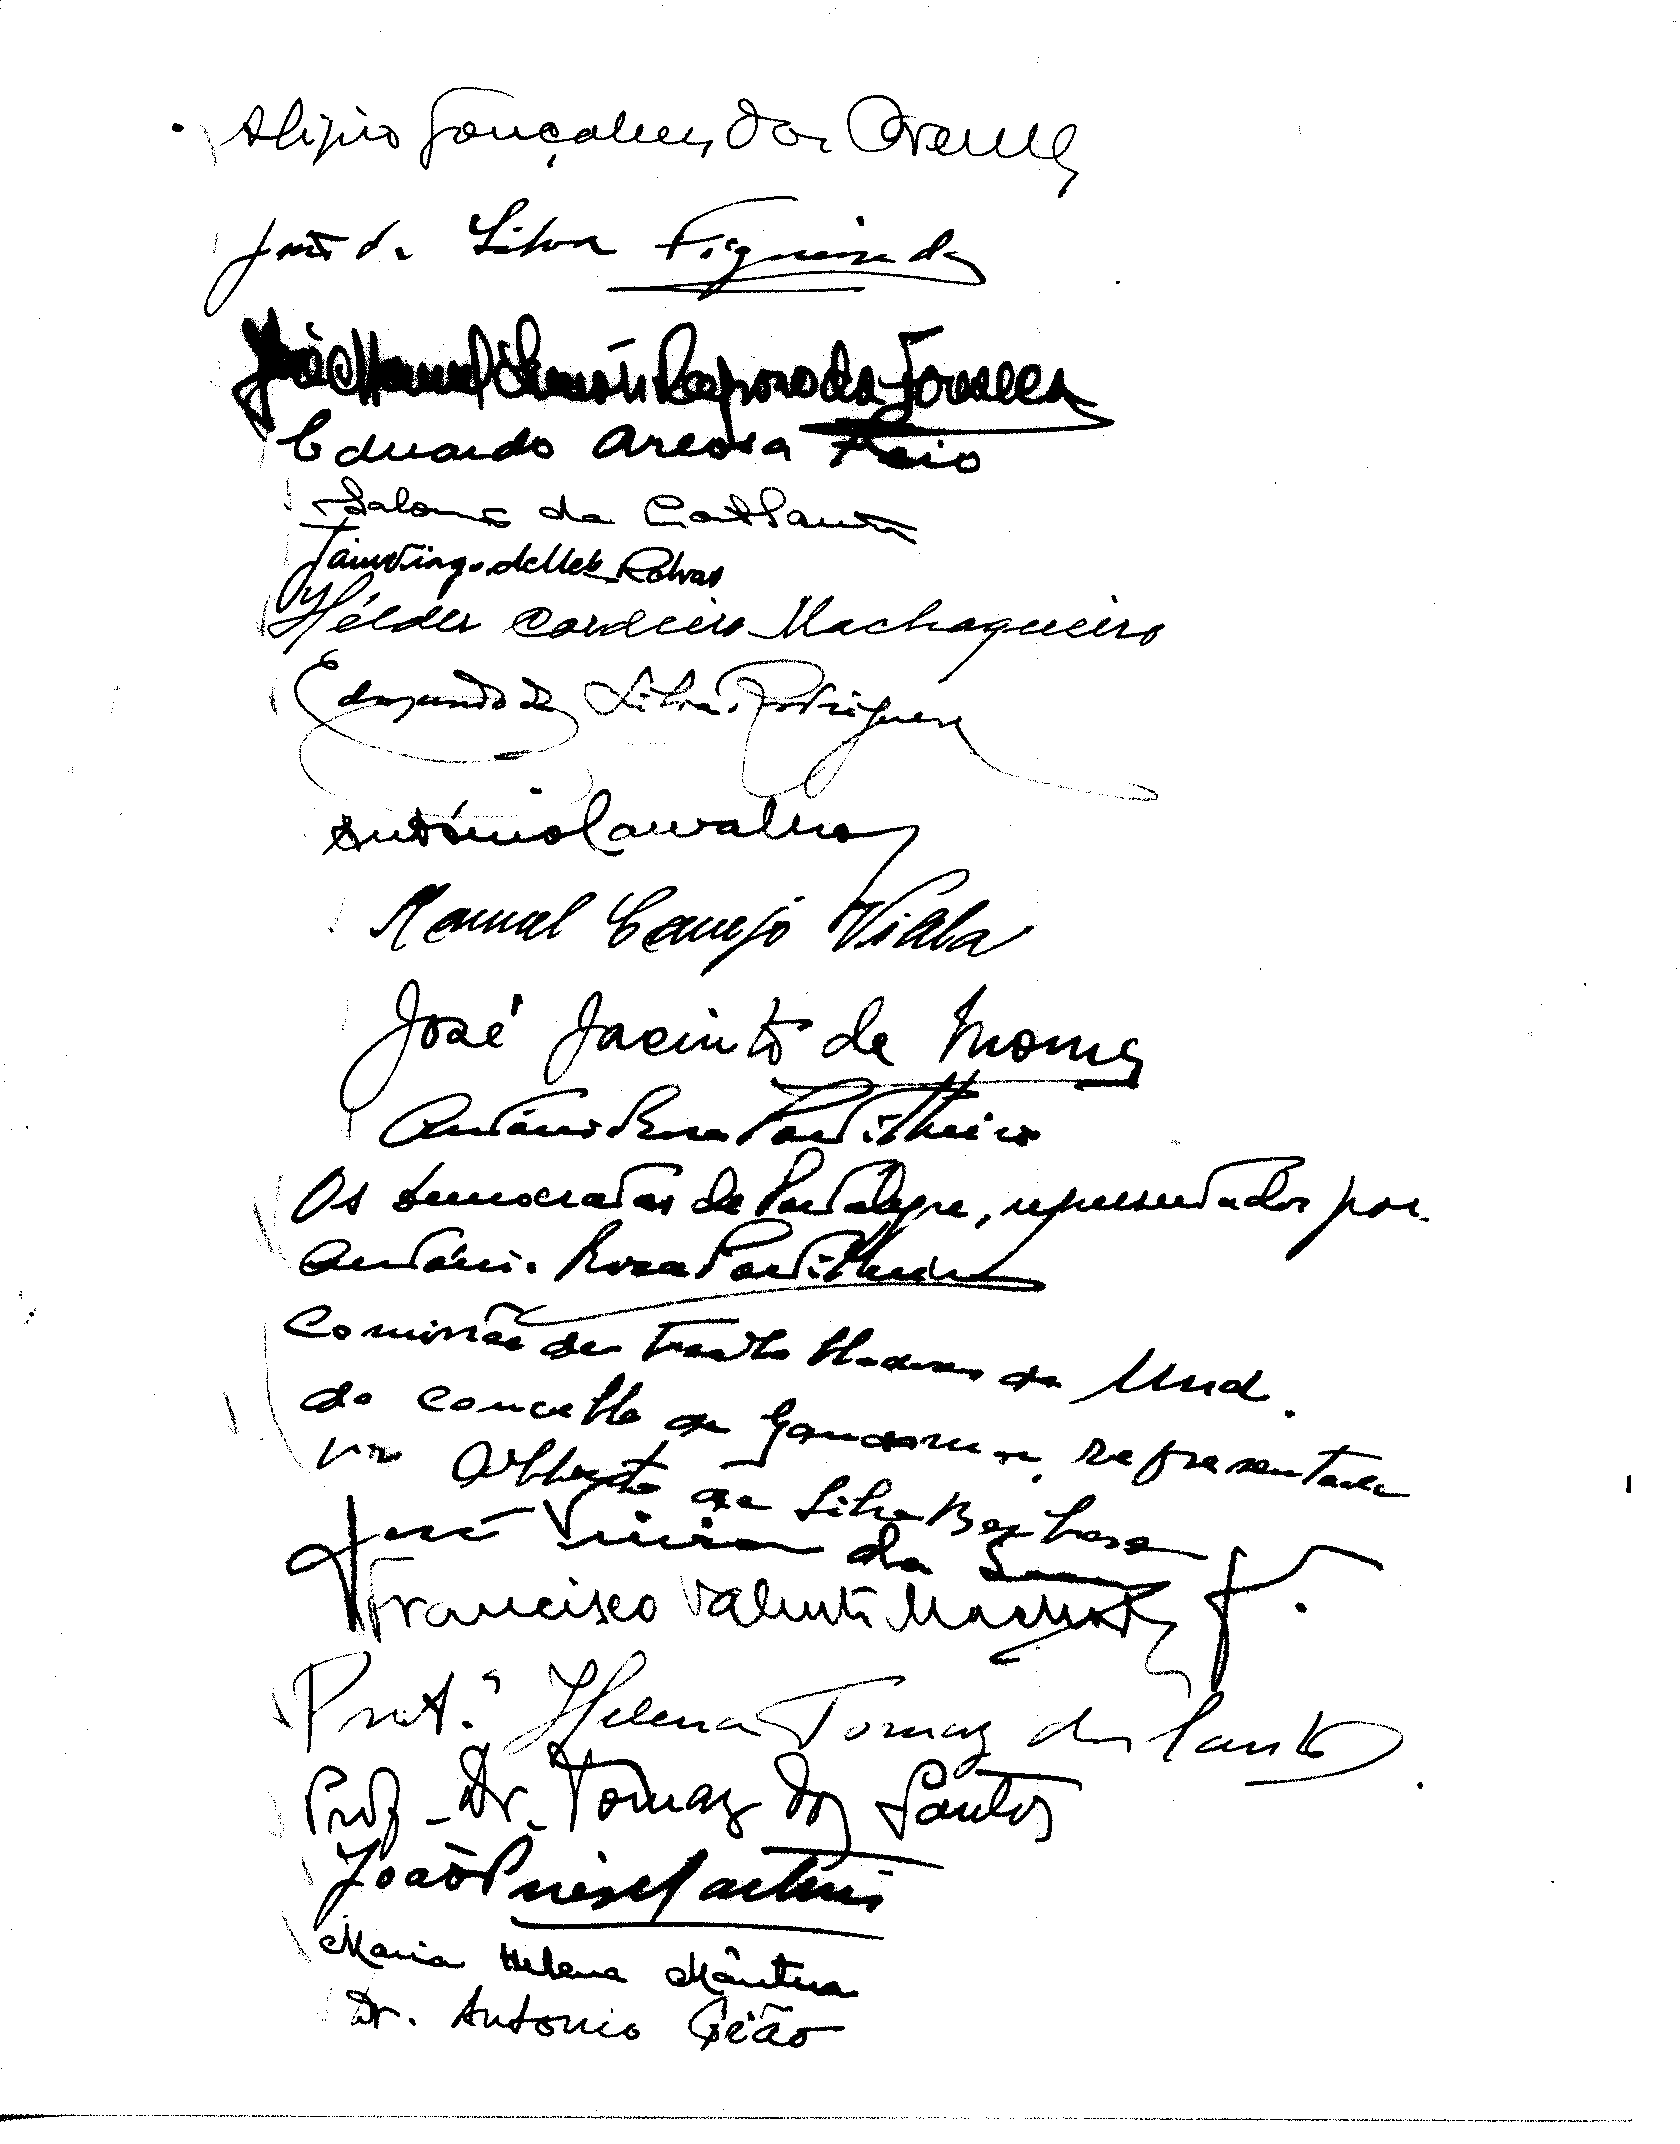 Alipio Gonçalves dos
José da Silva Figueiredo
Manuel Simões Raposo da Fonseca
Eduardo Areosa Feio
da
Jaime
Hélder Cordeiro Machaqueiro
Edmundo da Silva Rodrigues
António Carvalho
Manuel Canejo Vilela
José Jacinto de
António Rosa Portilheiro
Os democratas de Portalegre, representados por
António Rosa Portilheiro
Comissão de Trabalhadores da Mud.
do concelho de Gondomar, representada
por Alberto da Silva Barbosa
José Vieira da
Francisco Valente Machado
Prof.ª Helena Tomaz dos Santos
Prof. Dr. Tomaz dos Santos
João Pires Martins
Maria Helena Mântua
Dr. Antonio Geião